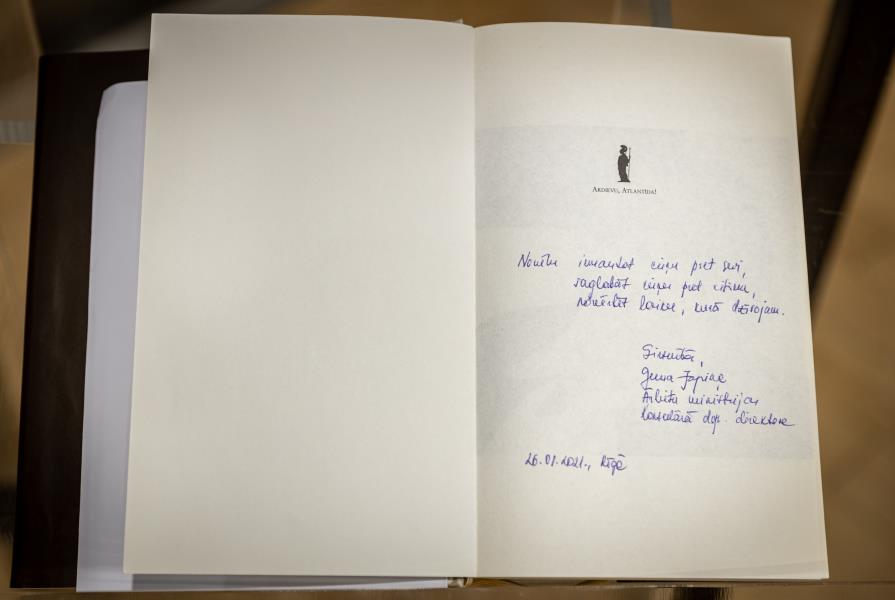 ARDIEVU, ATLANTĪDA!
Novēlu izmantot cieņu pret sevi,
saglabāt cieņu pret citiem,
novērtēt laiku, kurā dzīvojam.
Sirsnībā,
Guna Japiņa
Ārlietu ministrijas
Konsulārā dep. direktore
26.01.2021., Rīgā